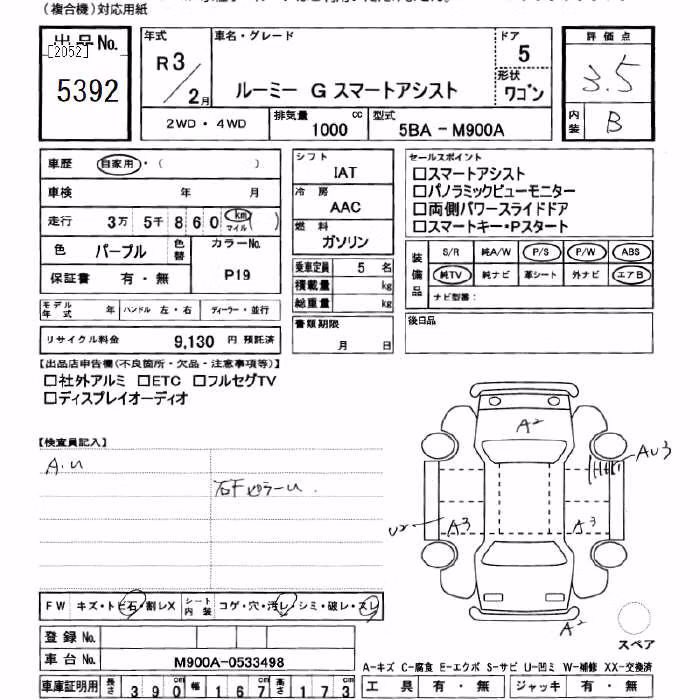 (複合機)対応用紙
出品No.
[2052]
5392
年式
R3/2月
車名・グレード
ルーミー G スマートアシスト
ドア
5
形状
ワゴン
評価点
3.5
内装
B
2WD・4WD
排気量 1000 cc
型式 5BA-M900A
車歴 自家用・( )
車検 年 月
走行 3万 5千 8 6 0 km マイル ( )
色 パープル 色替
カラーNo. P19
保証書 有・無
モデル年式 年 ハンドル 左・右 ディーラー・並行
リサイクル料金 9,130 円 預託済
シフト
IAT
冷房
AAC
燃料
ガソリン
乗車定員 5 名
積載量 kg
総重量 kg
書類期限
月 日
セールスポイント
□スマートアシスト
□パノラミックビューモニター
□両側パワースライドドア
□スマートキー・Pスタート
装備品
S/R 純A/W P/S P/W ABS
純TV 純ナビ 革シート 外ナビ エアB
ナビ型番:
後日品
【出品店申告欄(不良箇所・欠品・注意事項等)】
□社外アルミ □ETC □フルセグTV
□ディスプレイオーディオ
【検査員記入】
A.U
右Fピラーu.
A2
AU3
U2
A3
A3
A2
スペア
FW キズ・トビ石・割レX
シート内装 コゲ・穴・汚レ・シミ・破レ・スレ
登録No.
車台No. M900A-0533498
車庫証明用 長さ 390cm 幅 167cm 高さ 173cm
A-キズ C-腐食 E-エクボ S-サビ U-凹ミ W-補修 XX-交換済
工具 有・無 ジャッキ 有・無